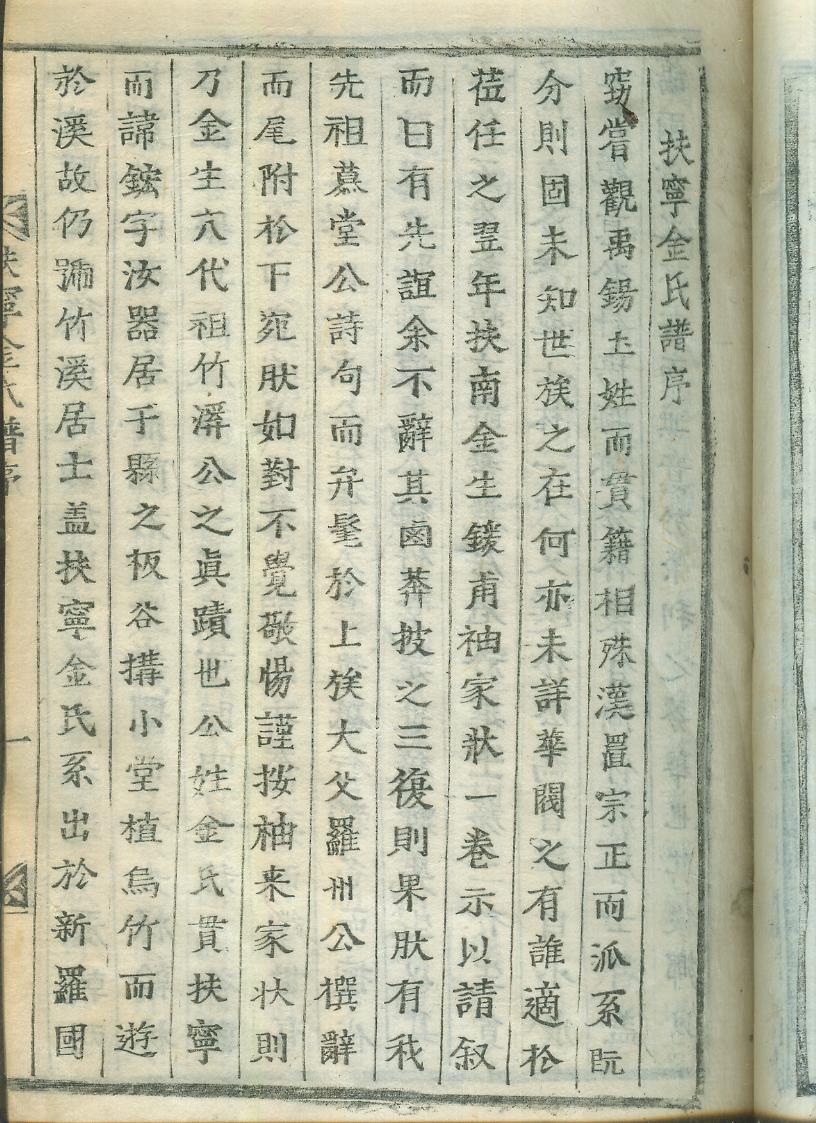 扶寧金氏譜序
窃嘗觀禹錫土姓而貫籍相殊漢置宗正而派系旣
分則固未知世族之在何亦未詳華閥之有誰適於
莅任之翌年扶南金生鍰甫袖家狀一卷示以請叙
而曰有先誼余不辭其鹵莽披之三復則果肰有我
先祖慕堂公詩句而弁髦於上族大父羅州公撰辭
而尾附於下宛肰如對不覺敬惕謹按柚来家状則
乃金生六代祖竹溪公之眞蹟也公姓金氏貫扶寧
而諱鋐字汝器居于縣之板谷搆小堂植烏竹而遊
於溪故仍號竹溪居士盖扶寧金氏系出於新羅國
扶寧金氏譜序
一